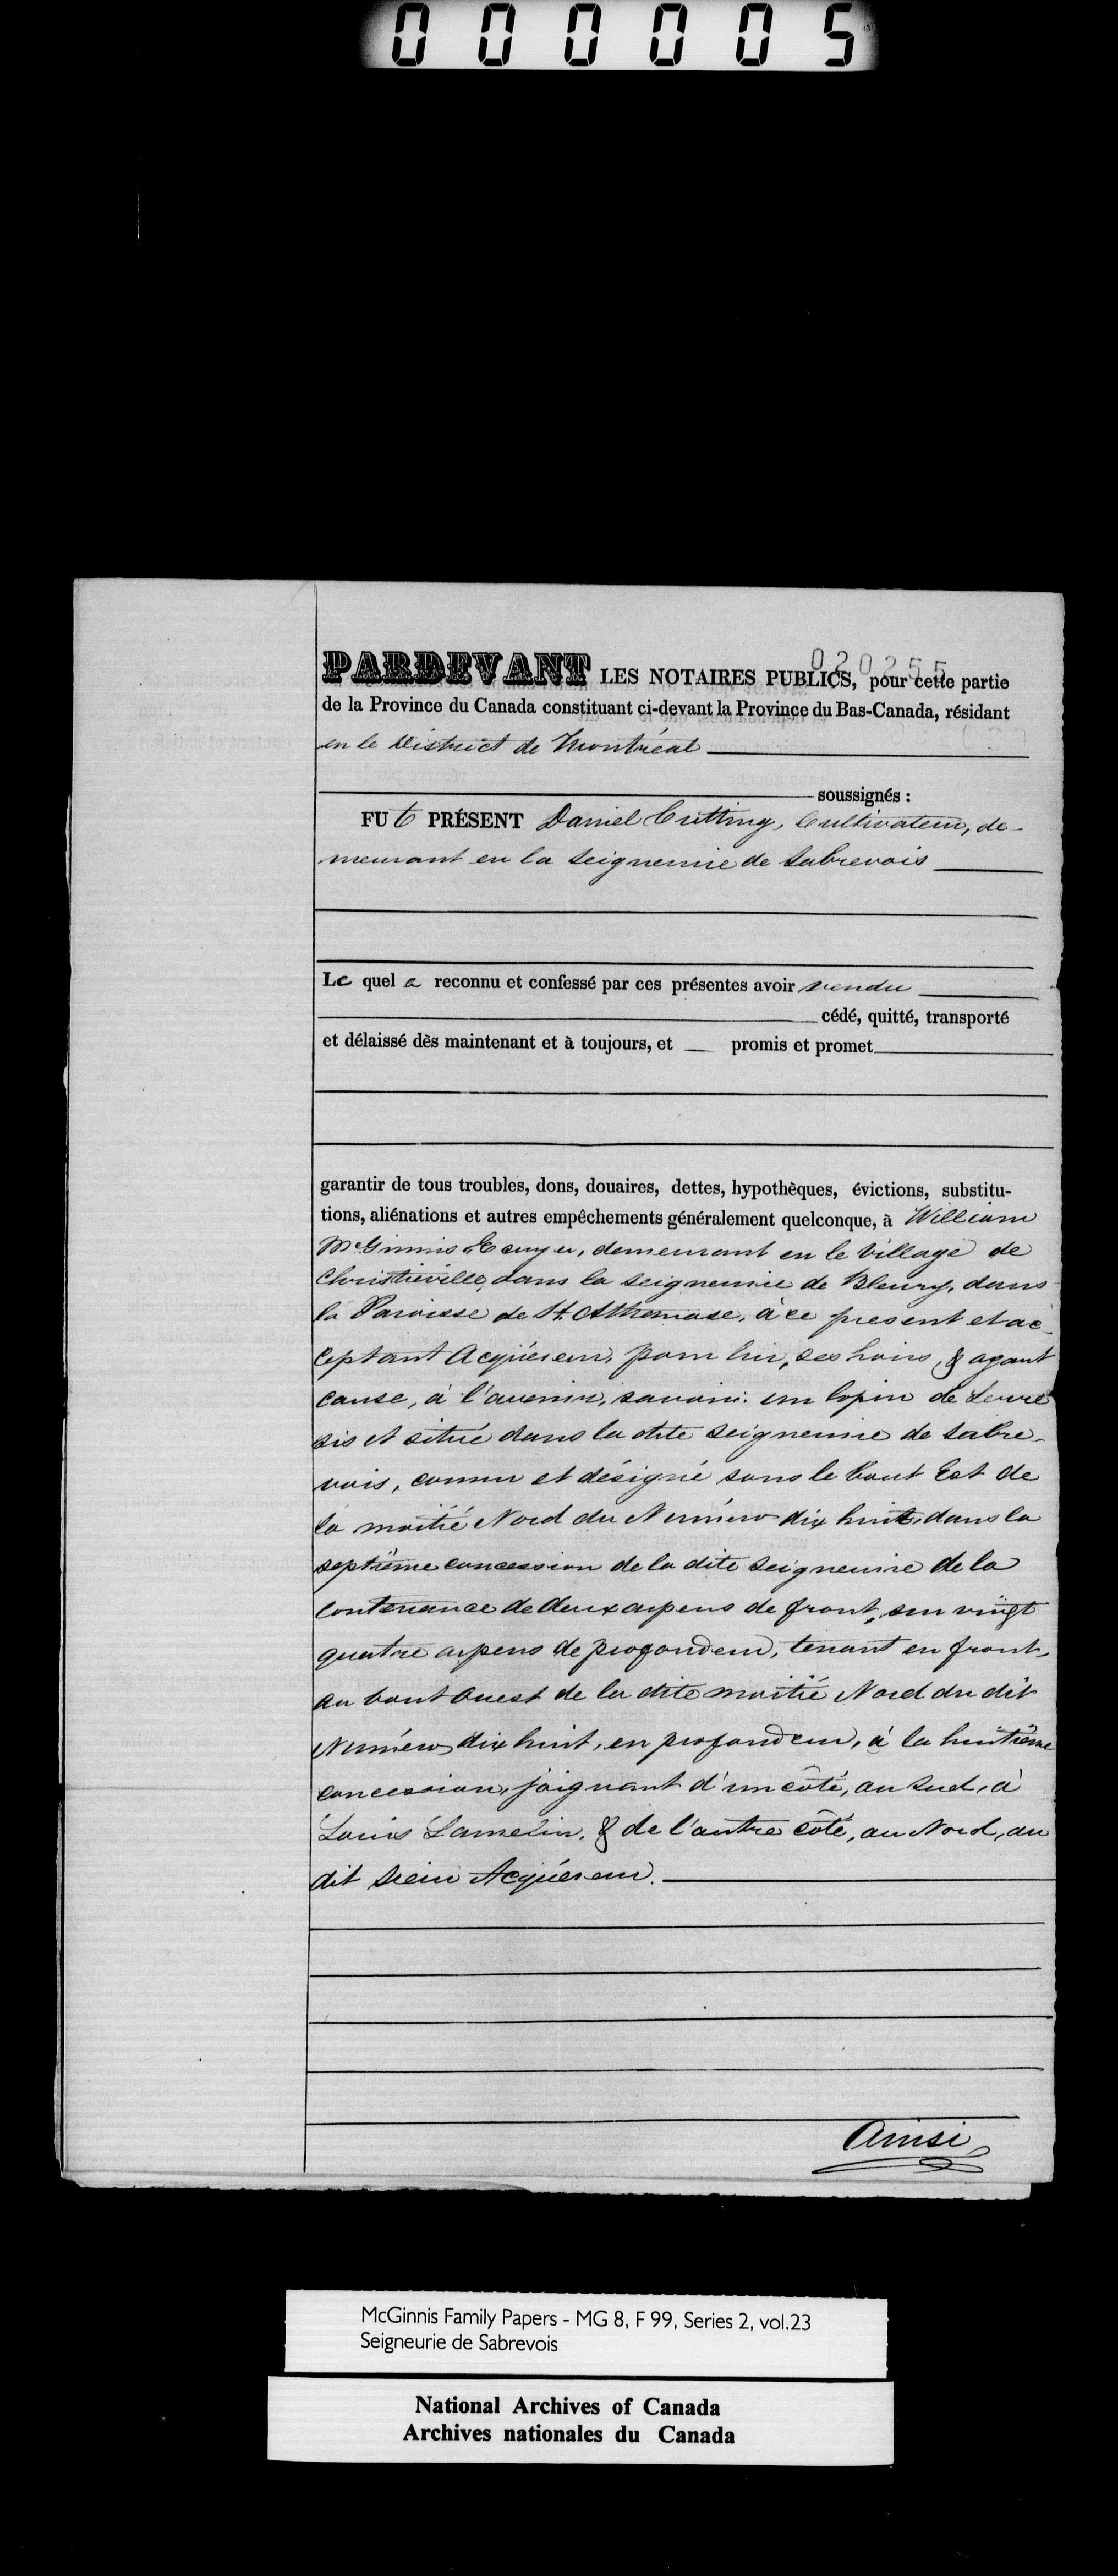 000005
020255
PARDEVANT LES NOTAIRES PUBLICS, pour cette partie
de la Province du Canada constituant ci-devant la Province du Bas-Canada, résidant
en le District de Montréal
soussignés :
FUt PRÉSENT Daniel Cutting, Cultivateur, de-
meurant en la Seigneurie de Sabrevois
Le quel a reconnu et confessé par ces présentes avoir vendu
cédé, quitté, transporté
et délaissé dès maintenant et à toujours, et promis et promet
garantir de tous troubles, dons, douaires, dettes, hypothèques, évictions, substitu-
tions, aliénations et autres empêchements généralement quelconque, à William
McGinnis, Ecuyer, demeurant en le Village de
Christieville, dans la seigneurie de Bleury, dans
la Paroisse de St. Athanase, à ce present et ac-
ceptant Acquéreur, pour lui, ses hoirs, & ayant
cause, à l'avenir, savoir: un lopin de terre
sis et situé dans la dite Seigneurie de Sabre-
vois, connu et désigné sous le bout Est de
la moitié Nord du Numéro dix huit, dans la
septième concession de la dite Seigneurie de la
contenance de deux arpens de front, sur vingt
quatre arpens de profondeur, tenant en front,
au bout Ouest de la dite moitié Nord du dit
Numéro dix huit, en profondeur, à la huitième
concession, joignant d'un côté, au Sud, à
Louis Lamelin, & de l'autre côté, au Nord, au
dit sieur Acquéreur.
Ainsi
McGinnis Family Papers - MG 8, F 99, Series 2, vol.23
Seigneurie de Sabrevois
National Archives of Canada
Archives nationales du Canada